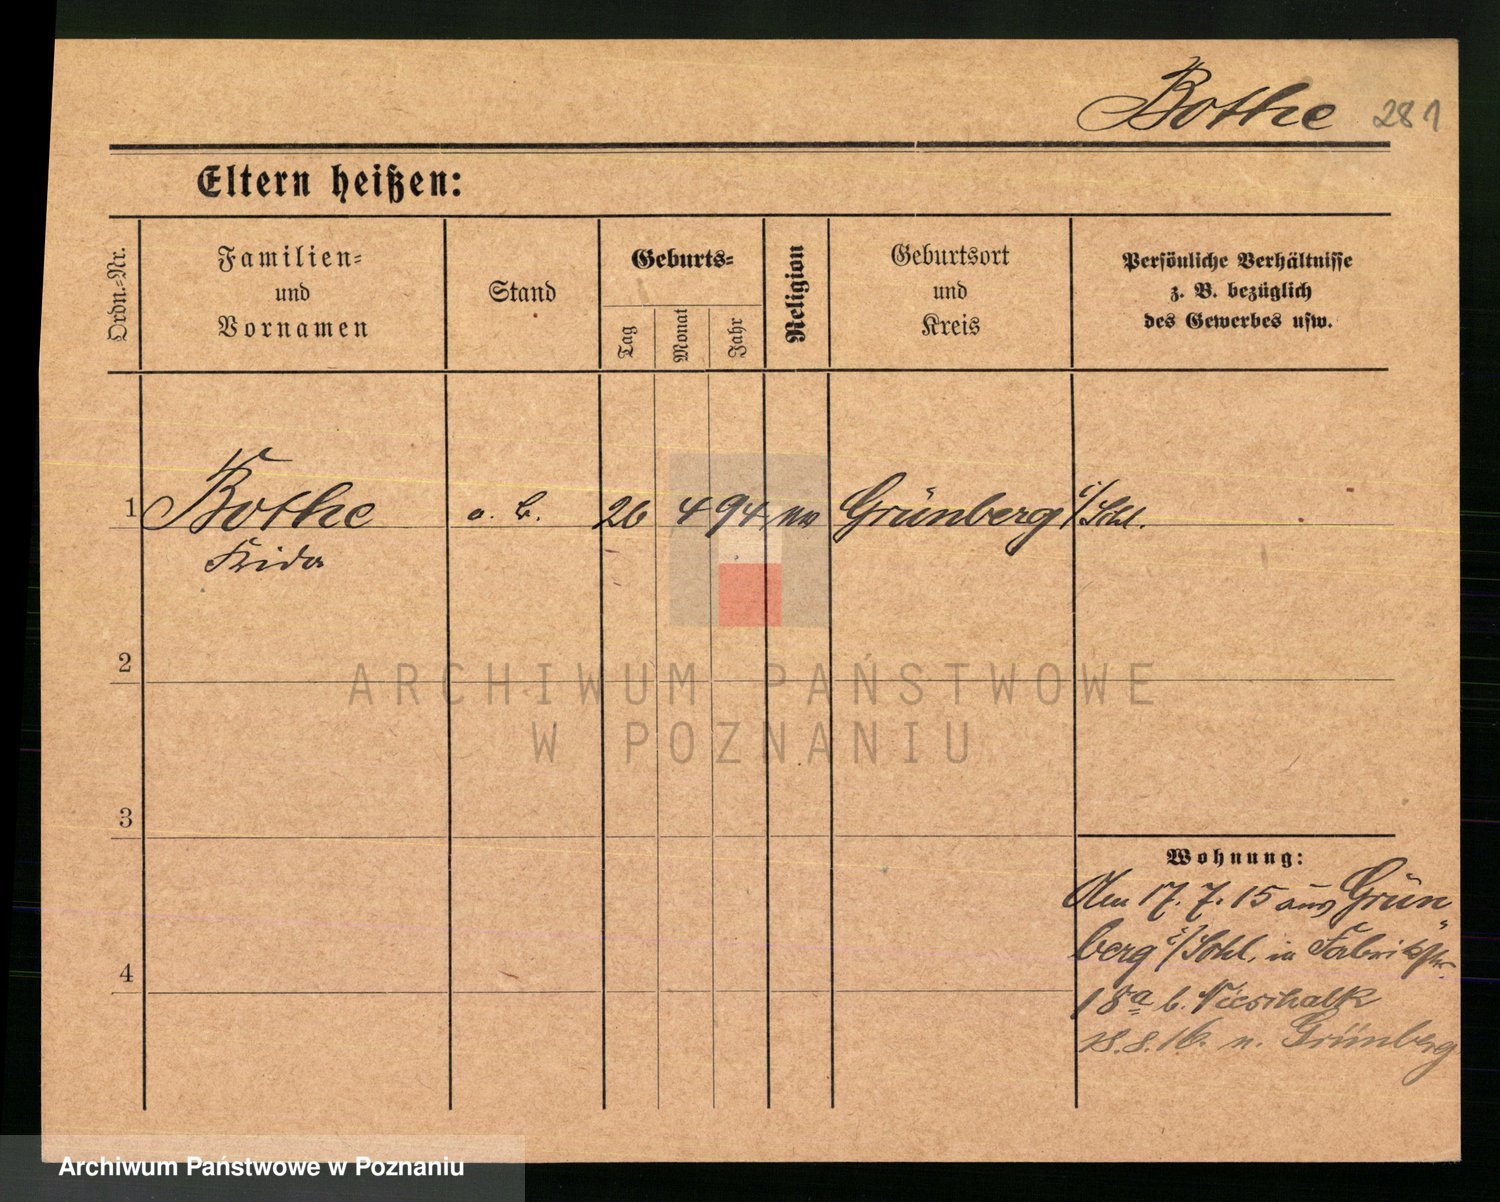 Bothe 281
Eltern heißen:
Ordn.-Nr.
Familien-
und
Vornamen
Stand
Geburts-
Tag
Monat
Jahr
Religion
Geburtsort
und
Kreis
Persönliche Verhältnisse
z. B. bezüglich
des Gewerbes usw.
1 Bothe o. B. 26 4 94 Grünberg i/Schl.
Frida
2
ARCHIWUM PAŃSTWOWE
W POZNANIU
3
Wohnung:
Am 17. 7. 15 aus Grün
berg i/Schl. in Fabrikstr.
4
18a b. Vieschalk
18. 8. 16. n. Grünberg
Archiwum Państwowe w Poznaniu